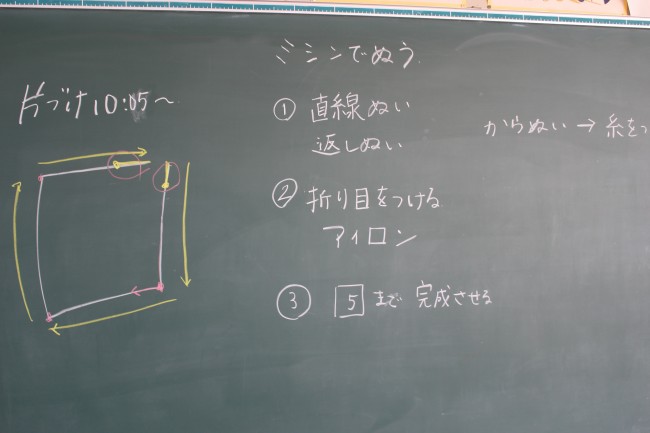 ミシンでぬう
片づけ10:05〜
① 直線ぬい
返しぬい
からぬい → 糸を
② 折り目をつける
アイロン
③ 5 まで 完成させる